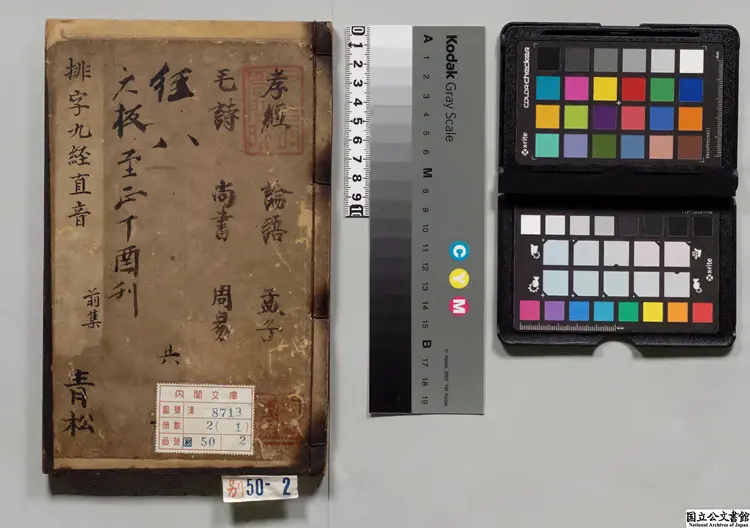 孝經 論語 孟子
毛詩 尚書 周易
經 八 共
大板至正丁酉刊
排字九經直音 前集 青松
内閣文庫
番號 漢 8713
册數 2(1)
函號 別 50 2
別50-2
0 1 2 3 4 5 6 7 8 9 10
Kodak Gray Scale
A 1 2 3 4 5 6 M 8 9 10 11 12 13 14 15 B 17 18 19
C Y M
© Kodak, 2007 TM: Kodak
colorchecker
xrite
xrite
国立公文書館
National Archives of Japan